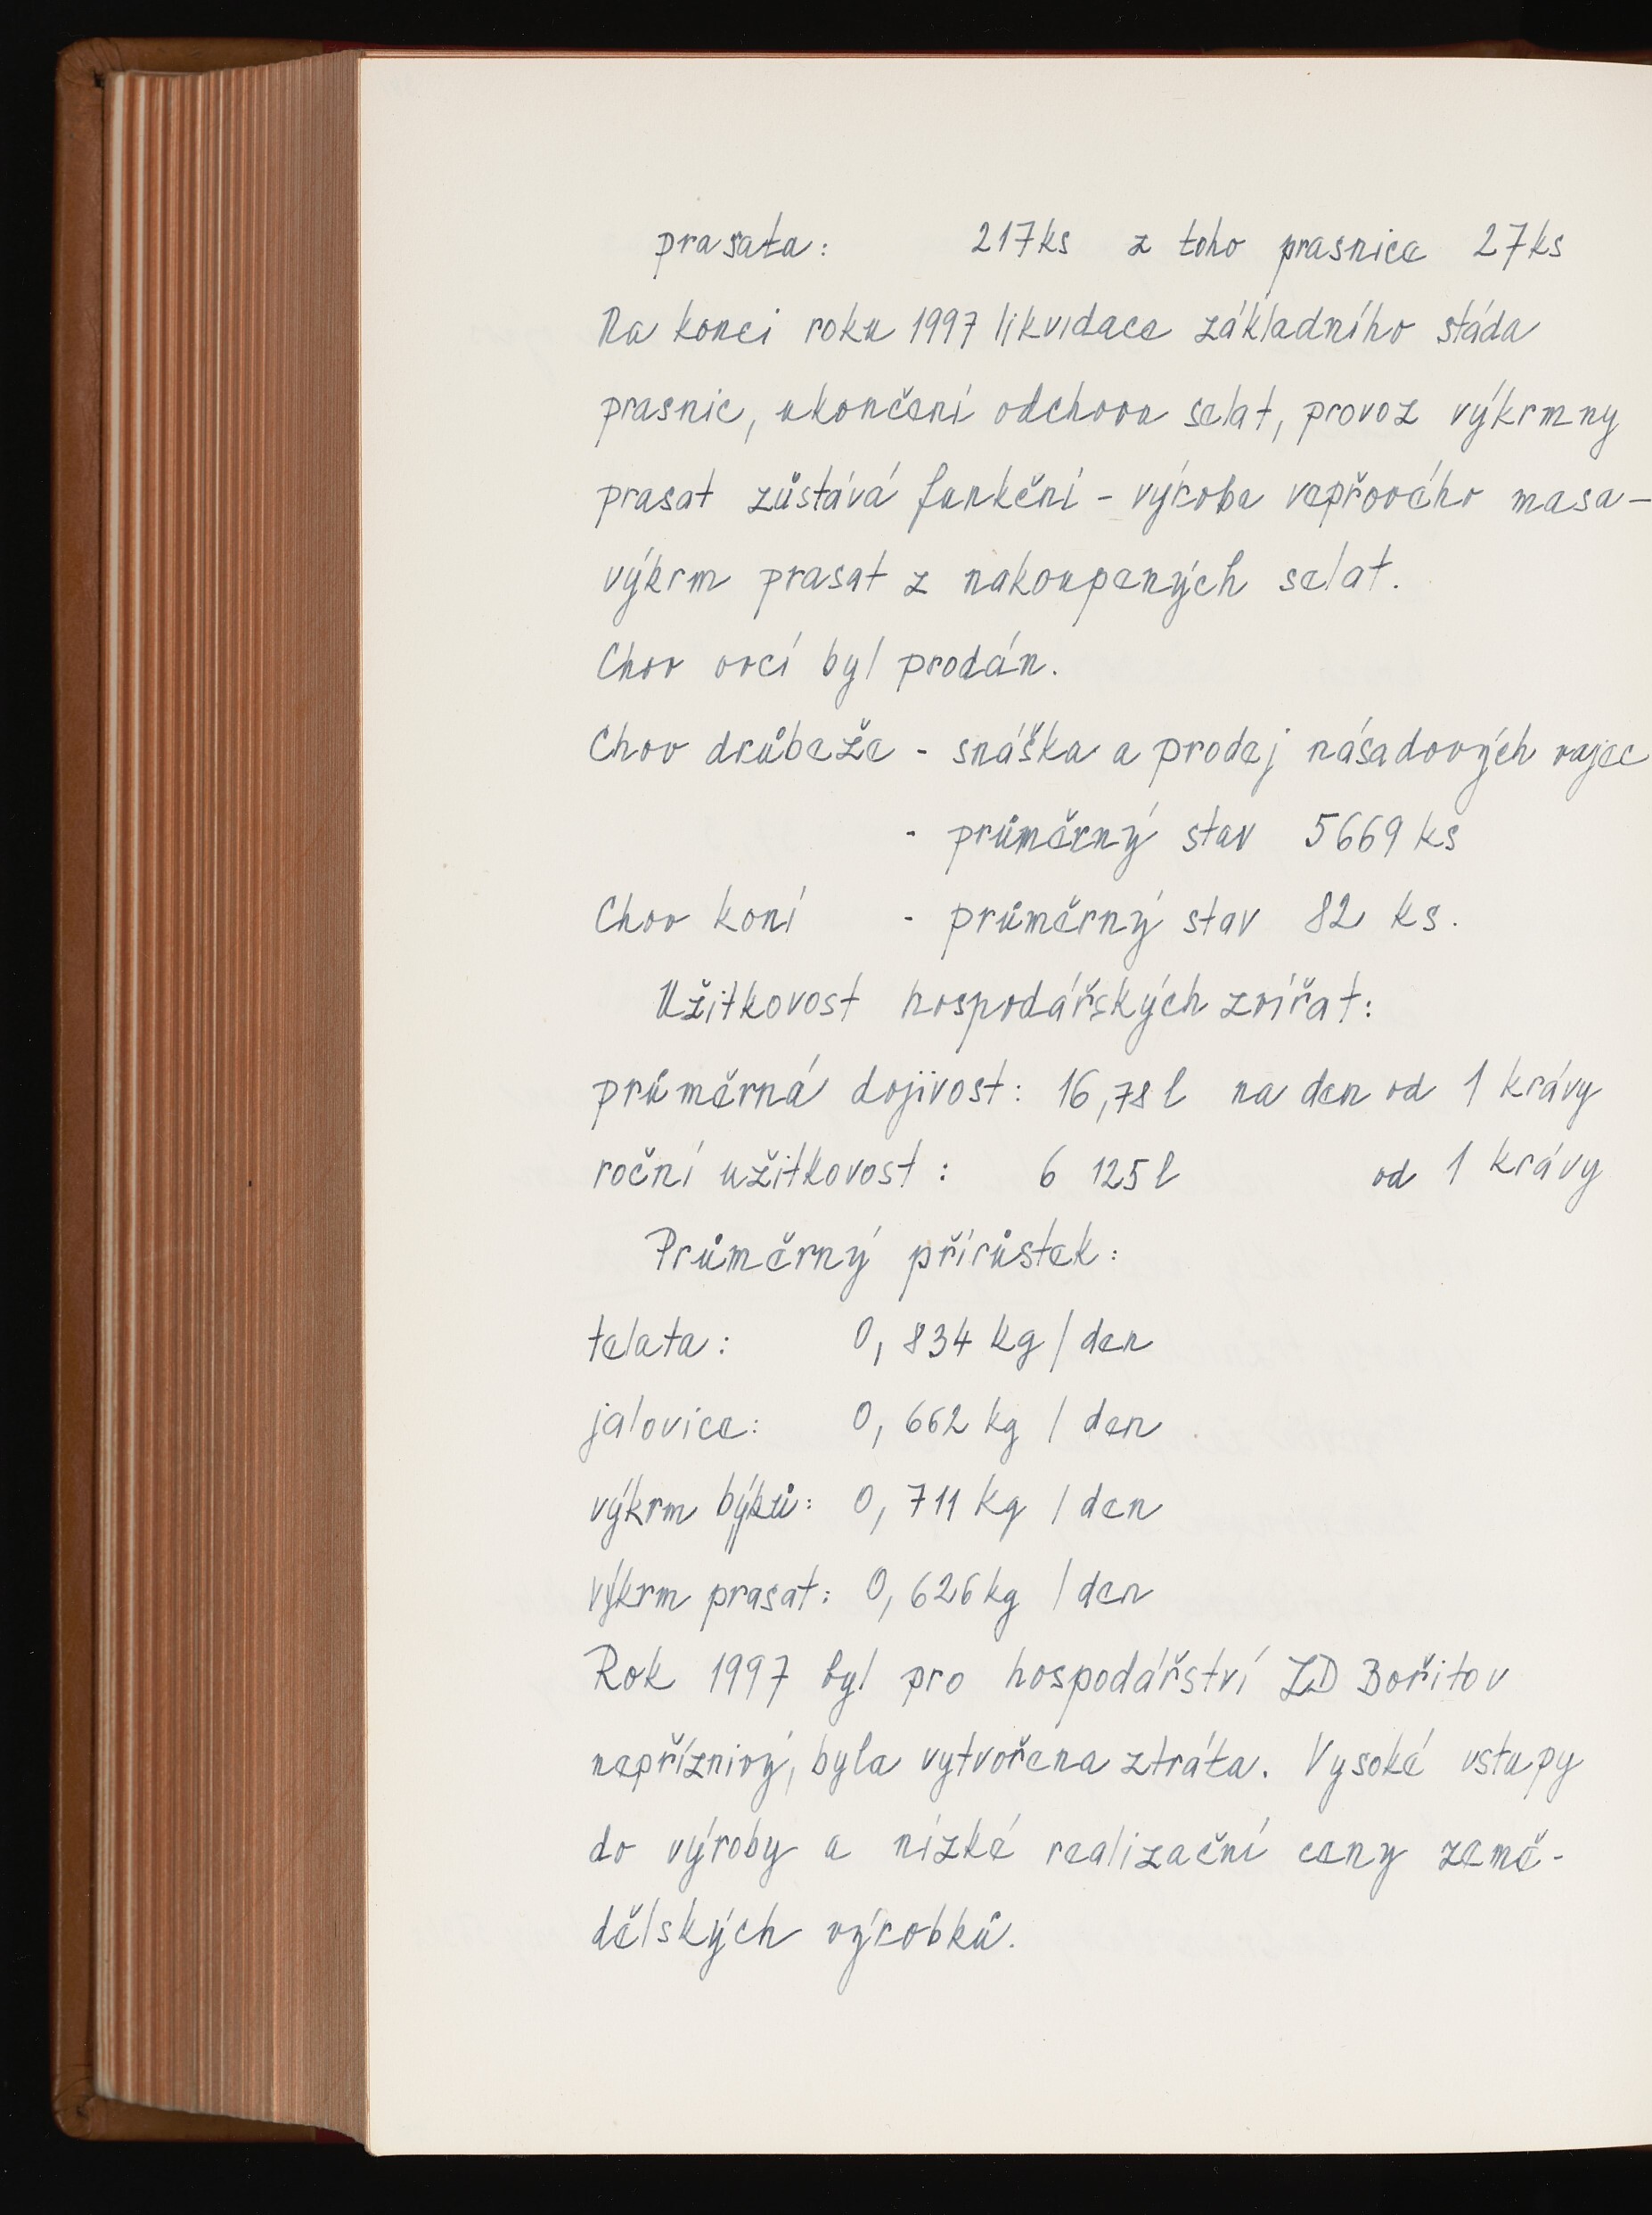 prasata: 217ks z toho prasnice 27ks
Na konci roku 1997 likvidace základního stáda
prasnic, ukončení odchovu selat, provoz výkrmny
prasat zůstává funkční - výroba vepřového masa -
výkrm prasat z nakoupených selat.
Chov ovcí byl prodán.
Chov drůbeže - snáška a prodej násadových vajec
- průměrný stav 5669 ks
Chov koní - průměrný stav 82 ks.
Užitkovost hospodářských zvířat:
průměrná dojivost: 16,78 l na den od 1 krávy
roční užitkovost: 6 125 l od 1 krávy
Průměrný přírůstek:
telata: 0,834 kg/den
jalovice: 0,662 kg / den
výkrm býků: 0,711 kg / den
výkrm prasat: 0,626 kg / den
Rok 1997 byl pro hospodářství ZD Bořitov
nepříznivý, byla vytvořena ztráta. Vysoké vstupy
do výroby a nízké realizační ceny země-
dělských výrobků.